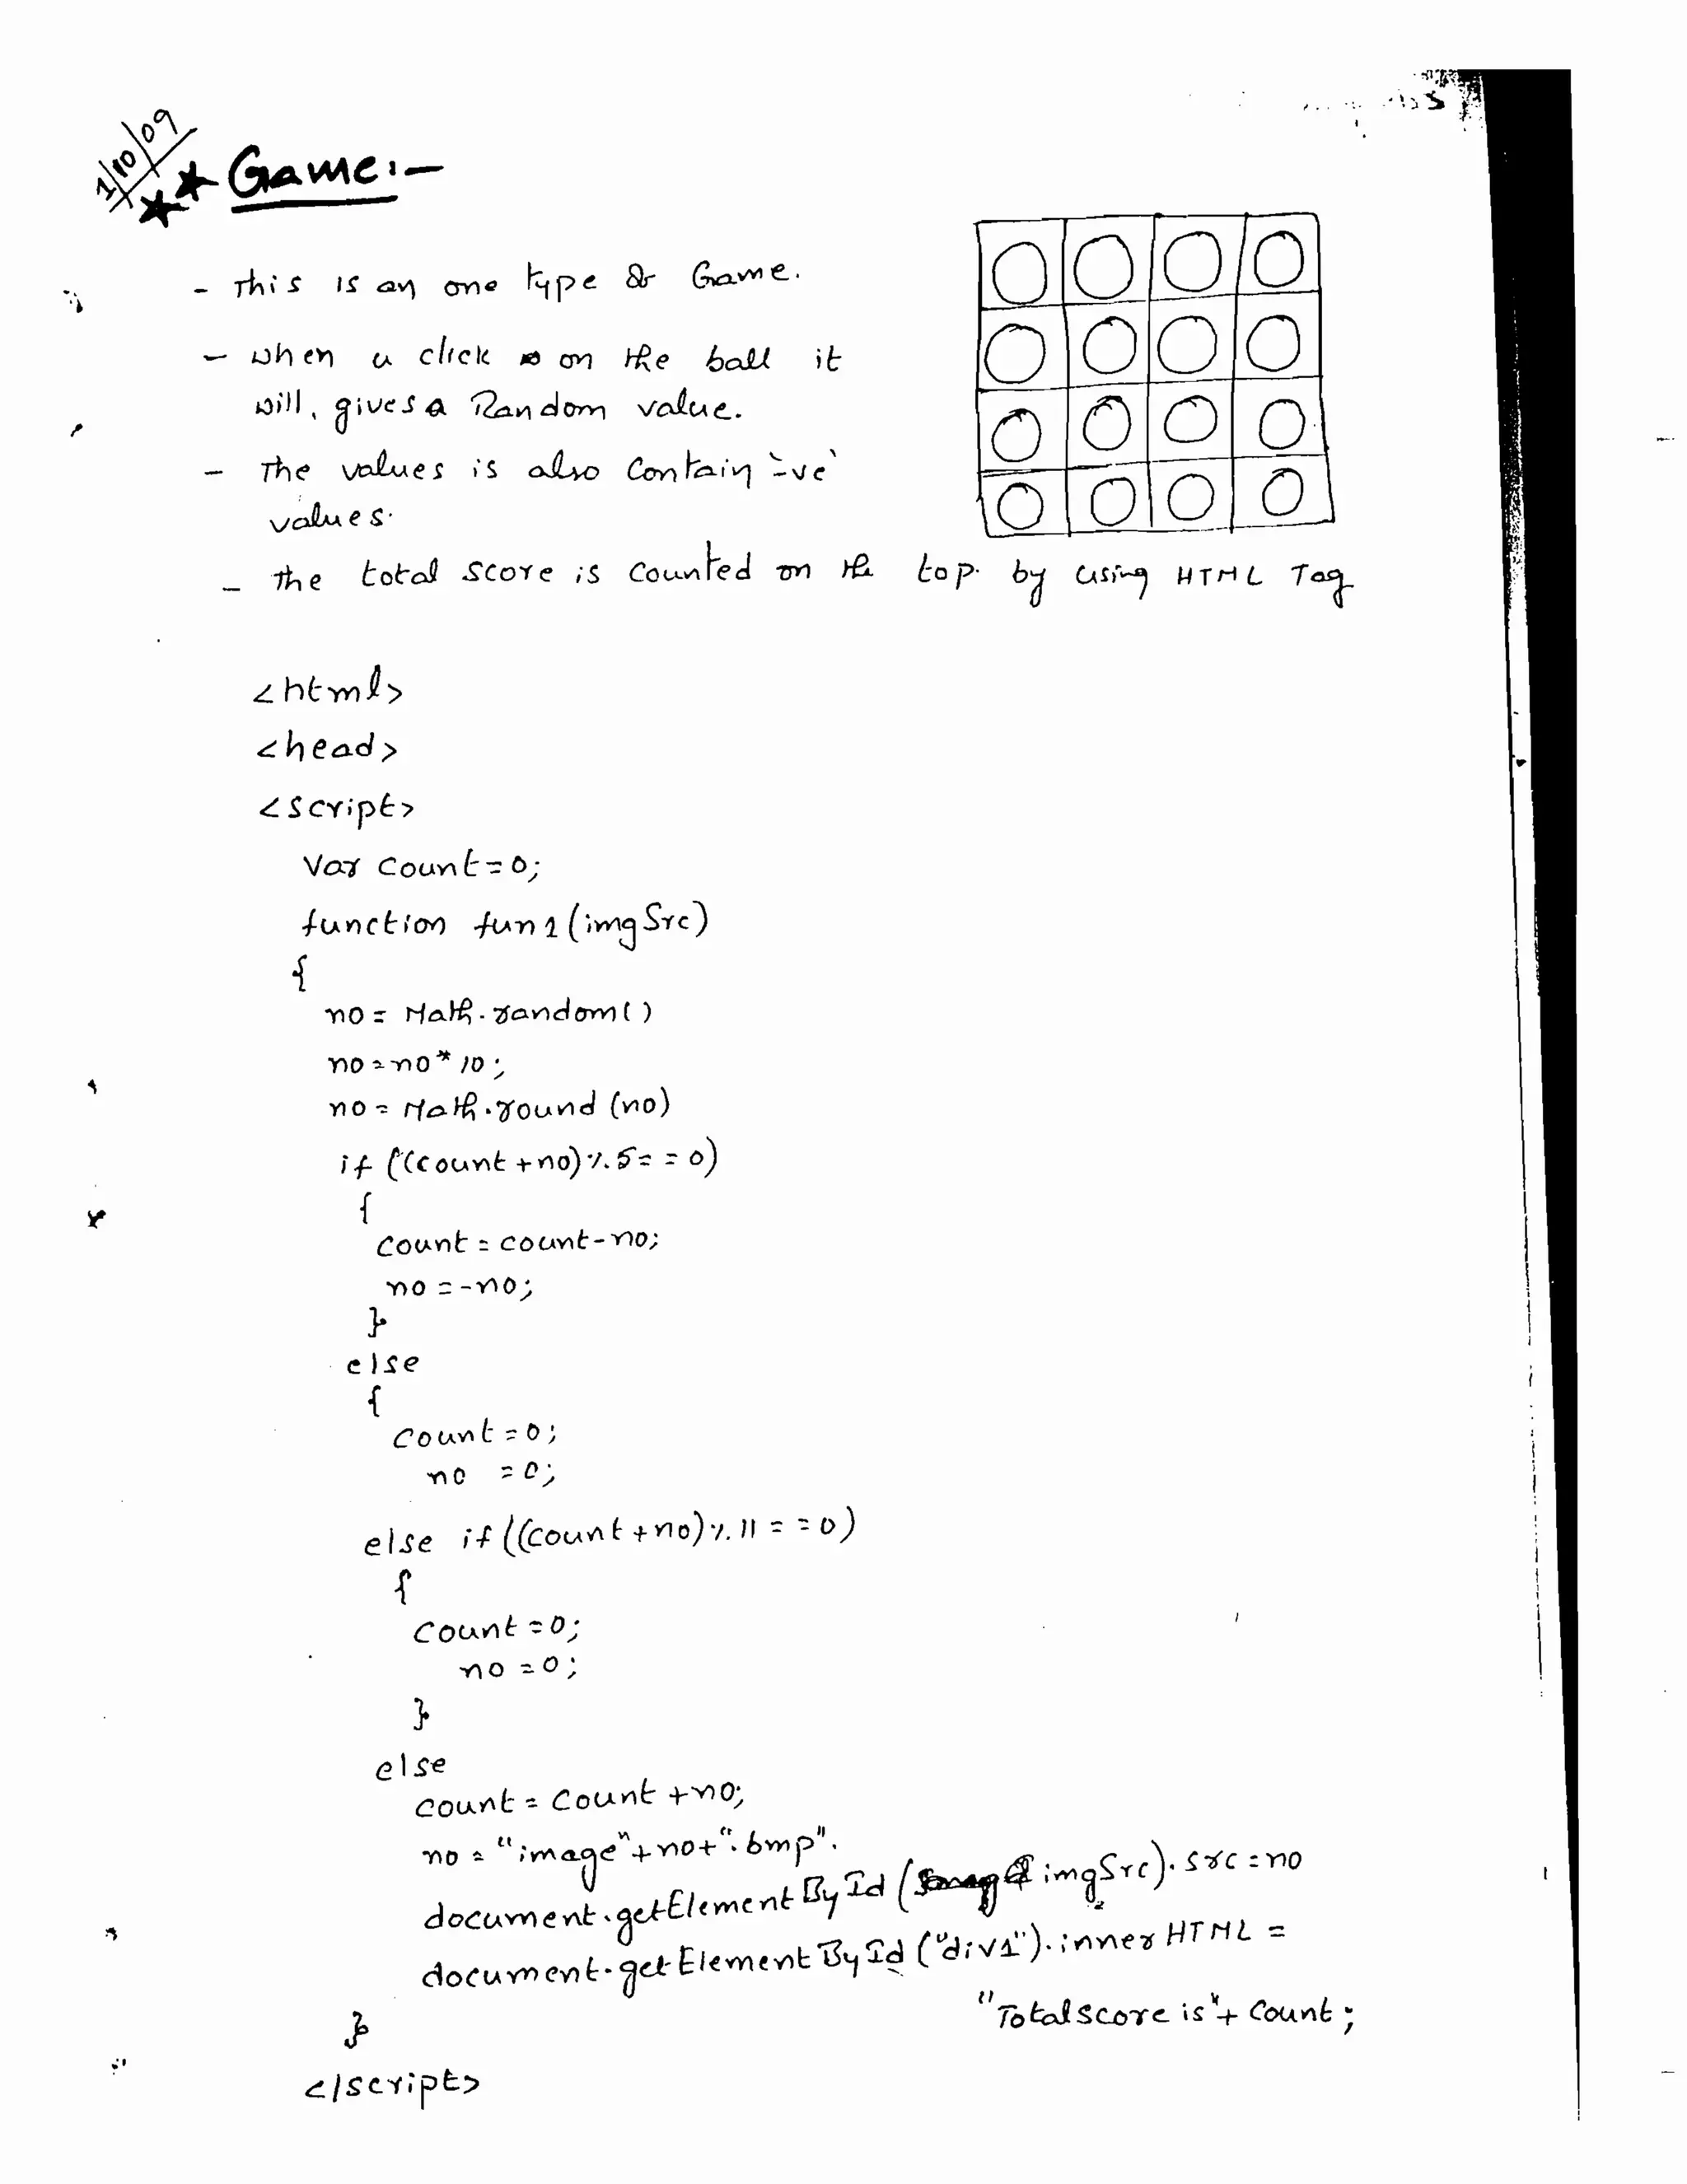 1/10/09
Game:-
- This is an one type of Game.
- when u click on the ball it
will, gives a Random value.
- The values is also Contain '-ve'
values.
- The total score is counted on the top. by using HTML Tag
<html>
<head>
<script>
Var Count=0;
function fun1(imgSrc)
{
no = Math.random()
no=no*10;
no = Math.round (no)
if ((count+no)%5==0)
{
count = count-no;
no =-no;
}
else
{
Count =0;
no =0;
else if((count+no)%11==0)
{
Count =0;
no =0;
}
else
count = Count +no;
no = "image"+no+".bmp".
document.getElementById (imgSrc).src=no
document.getElementById ("div1").innerHTML =
"Totalscore is"+ Count;
}
</script>